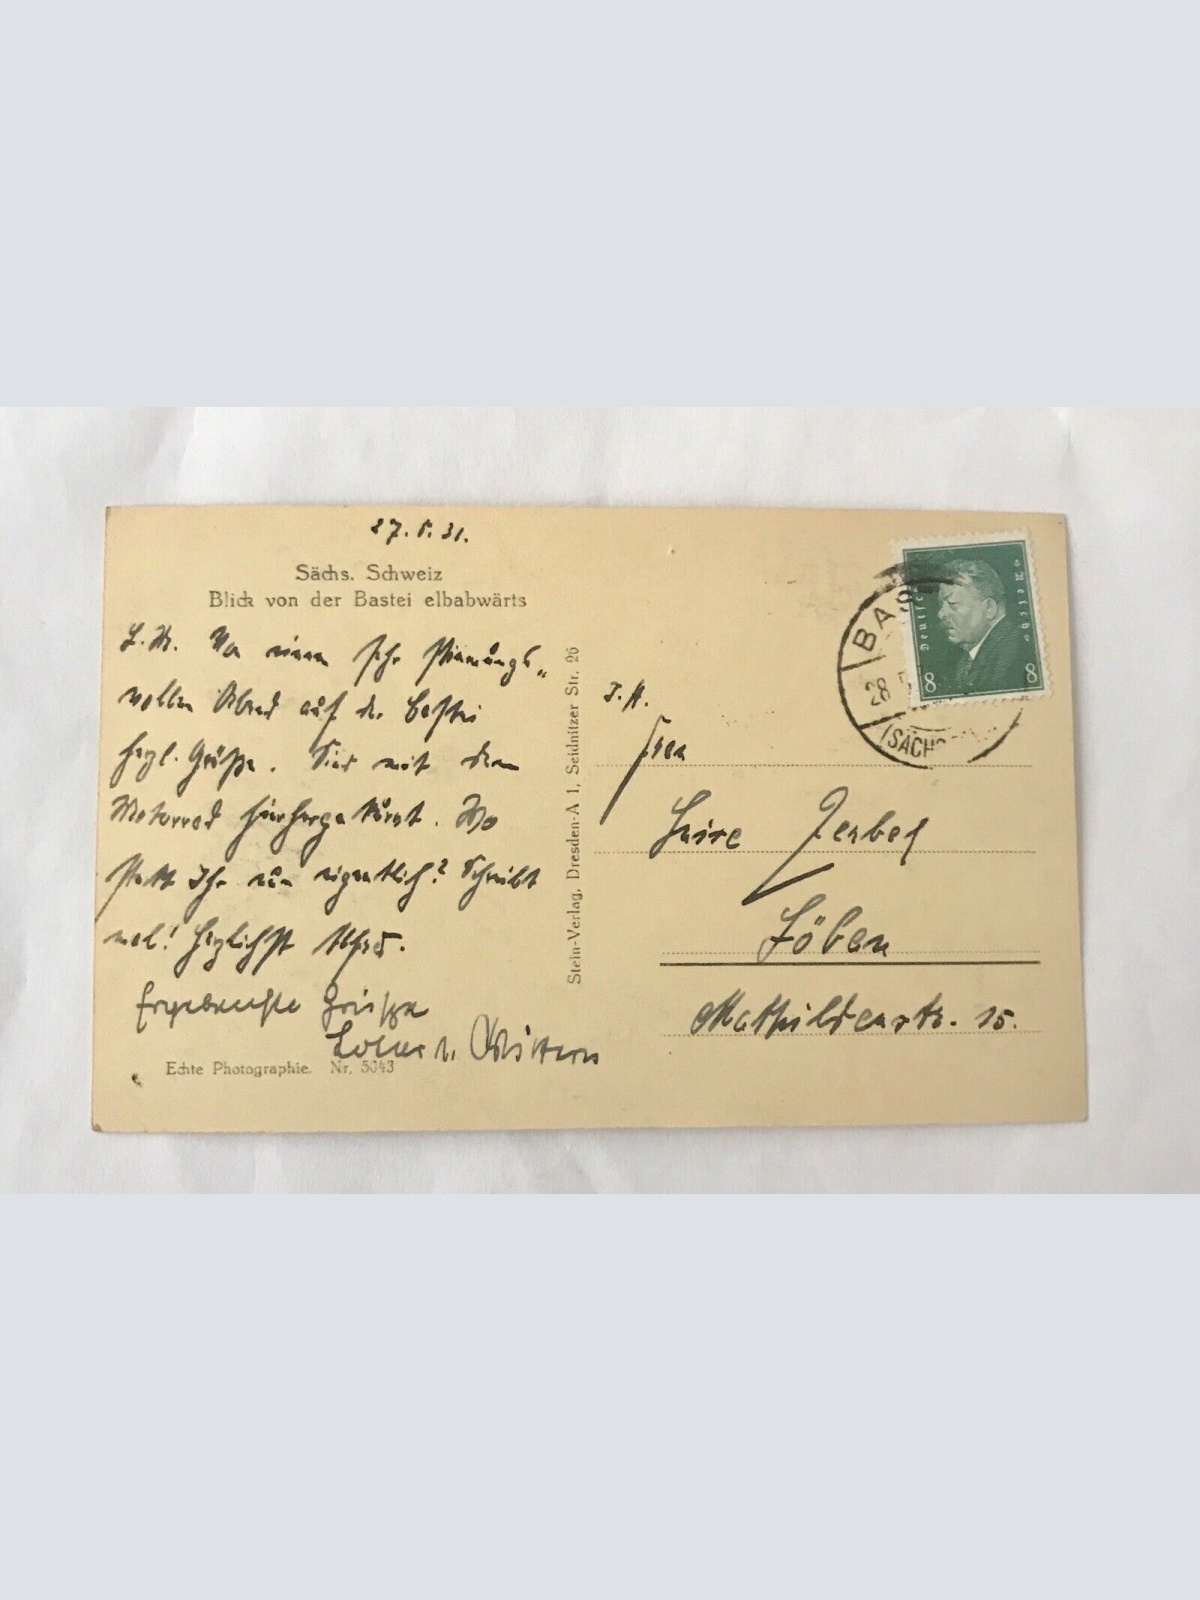 27.5.31.
Sächs. Schweiz
Blick von der Bastei elbabwärts
L. M. Von einem sehr stimmungs-
vollen Abend auf der Bastei
herzl. Grüße. Sind mit dem
Motorrad hierher getürmt. Wo
steckt Ihr nun eigentlich? Schreibt
mal! Herzlichst Alfred.
Ergebenste Grüße
Echte Photographie. Nr. 5043
Stein-Verlag, Dresden-A 1, Seidnitzer Str. 26
BAS
28.5
(SÄCHS
Deutsches Reich
8 8
Frau
Luise
Löbau
Mathildenstr. 15.